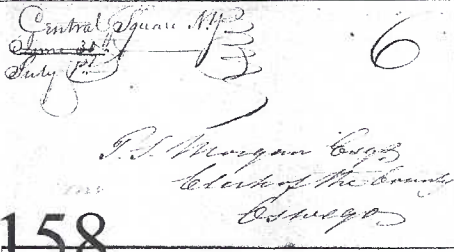 Central Square N.Y.
June 30th
July 1st
6
P. S. Morgan Esqr
Clerk of the County
Oswego
158